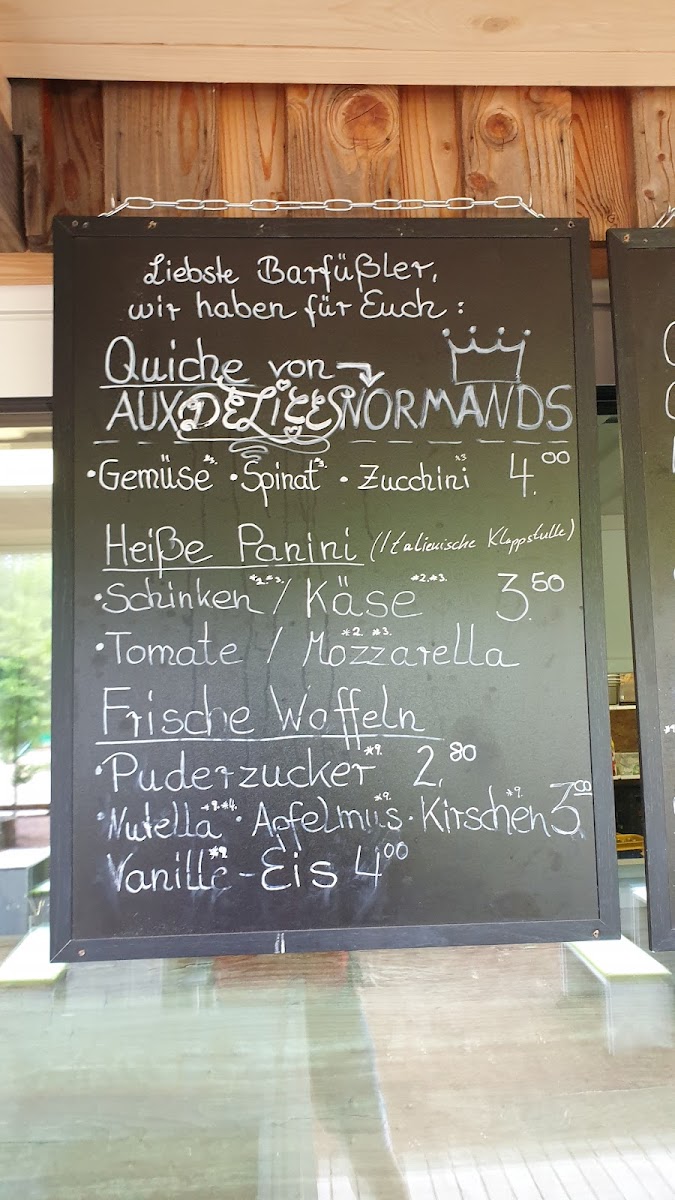 Liebste Barfüßler,
wir haben für Euch:
Quiche von
AUX DÉLICES NORMANDS
•Gemüse*3. •Spinat*3. • Zucchini*3 4.00
Heiße Panini (Italienische Klappstulle)
•Schinken*2.*3. / Käse*2.*3. 3.50
•Tomate / Mozzarella*2. *3.
Frische Waffeln
•Puderzucker*9. 2.80
•Nutella*9.*4. • Apfelmus*9. • Kirschen*9. 3.00
Vanille*9-Eis 4.00